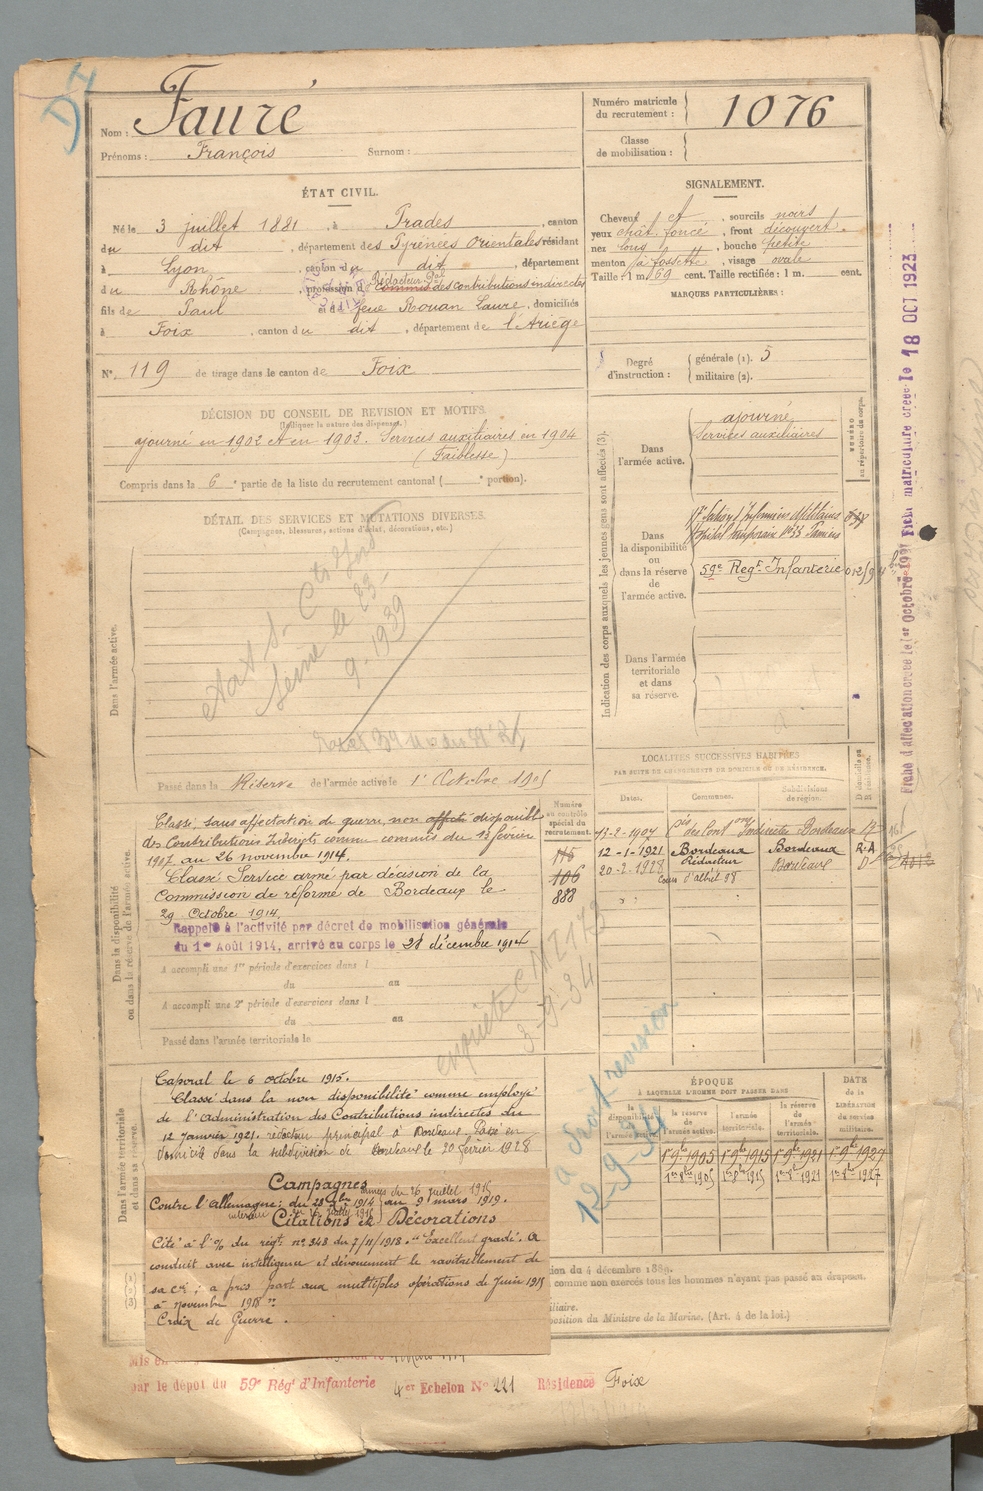 Nom : Fauré
Prénoms : François Surnom :
Numéro matricule du recrutement : 1076
Classe de mobilisation :
ÉTAT CIVIL.
Né le 3 juillet 1881, à Prades, canton
du dit, département des Pyrénées Orientales résidant
à Lyon, canton du dit, département
du Rhône, profession de Rédacteur Pal Commis des contributions indirectes
fils de Paul et de feue Rouan Laure, domiciliés
à Foix, canton du dit, département de l'Ariège
N° 119 de tirage dans le canton de Foix
SIGNALEMENT.
Cheveux et, sourcils noirs
yeux chât. foncé, front découvert.
nez long, bouche petite
menton à fossette, visage ovale
Taille : 1 m. 69 cent. Taille rectifiée : 1 m. cent.
MARQUES PARTICULIÈRES :
Degré d'instruction : générale (1). 5
militaire (2).
DÉCISION DU CONSEIL DE REVISION ET MOTIFS.
(Indiquer la nature des dispenses.)
ajourné en 1902 et en 1903. Services auxiliaires en 1904
(Faiblesse)
Compris dans la 6e partie de la liste du recrutement cantonal ( ° portion).
DÉTAIL DES SERVICES ET MUTATIONS DIVERSES.
(Campagnes, blessures, actions d'éclat, décorations, etc.)
Dans l'armée active.
Seine le 23-
9-1939
Passé dans la Réserve de l'armée active le 1er Octobre 1905
Indication des corps auxquels les jeunes gens sont affectés (3).
NUMÉRO au répertoire du corps.
Dans l'armée active.
ajourné
Services auxiliaires
Dans la disponibilité ou dans la réserve de l'armée active.
Infirmiers Militaires
Hôpital temporaire Pamiers
59e Regt Infanterie
Dans l'armée territoriale et dans sa réserve.
LOCALITÉS SUCCESSIVES HABITÉES
PAR SUITE DE CHANGEMENTS DE DOMICILE OU DE RÉSIDENCE.
Dates. Communes. Subdivisions de région. D domicile ou R résidence.
13-2-1907 Indirectes Bordeaux R
12-1-1921 Bordeaux Bordeaux R.A
20-2-1928 Rédacteur Bordeaux D
Cours d'albret 98
Dans la disponibilité ou dans la réserve de l'armée active.
Numéro au contrôle spécial du recrutement.
115
106
888
Classé, sans affectation de guerre, non affecté disponible
des Contributions Indirects comme commis du 13 février
1907 au 26 novembre 1914.
Classé Service armé par décision de la
Commission de réforme de Bordeaux le
29 Octobre 1914.
Rappelé à l'activité par décret de mobilisation générale
du 1er Août 1914, arrivé au corps le 28 décembre 1914
A accompli une 1re période d'exercices dans l
du au
A accompli une 2e période d'exercices dans l
du au
Passé dans l'armée territoriale le
enquête
3-9-34
a droit revision
12-9-34
Dans l'armée territoriale et dans sa réserve.
Caporal le 6 octobre 1915.
Classé dans la non disponibilité comme employé
de l'administration des Contributions indirectes du
12 Janvier 1921. rédacteur principal à Bordeaux. Passé en
domicile dans la subdivision de Bordeaux le 20 février 1928
ÉPOQUE
À LAQUELLE L'HOMME DOIT PASSER DANS
DATE de la LIBÉRATION du service militaire.
la disponibilité de l'armée active. la réserve de l'armée active. l'armée territoriale. la réserve de l'armée territoriale.
1er 9bre 1905 1er 9bre 1915 1er 9bre 1921 1er 9bre 1927
1er 8bre 1905 1er 8bre 1915 1er 8bre 1921 1er 8bre 1927
Campagnes
Contre l'allemagne; du 28 Xbre 1914 au 9 mars 1919.
Citations et Décorations
Cité à l'O/ du régt. n° 348 du 7/11/1918. "Excellent gradé. A
conduit avec intelligence et dévouement le ravitaillement de
sa Cie ; a pris part aux multiples opérations de Juin 1915
à novembre 1918".
Croix de Guerre.
du 4 décembre 1889.
comme non exercés tous les hommes n'ayant pas passé au drapeau.
du Ministre de la Marine. (Art. 4 de la loi.)
par le dépôt du 59e Régt d'Infanterie Echelon N° 221 Résidence Foix
Fiche matriculaire créée le 18 OCT 1923